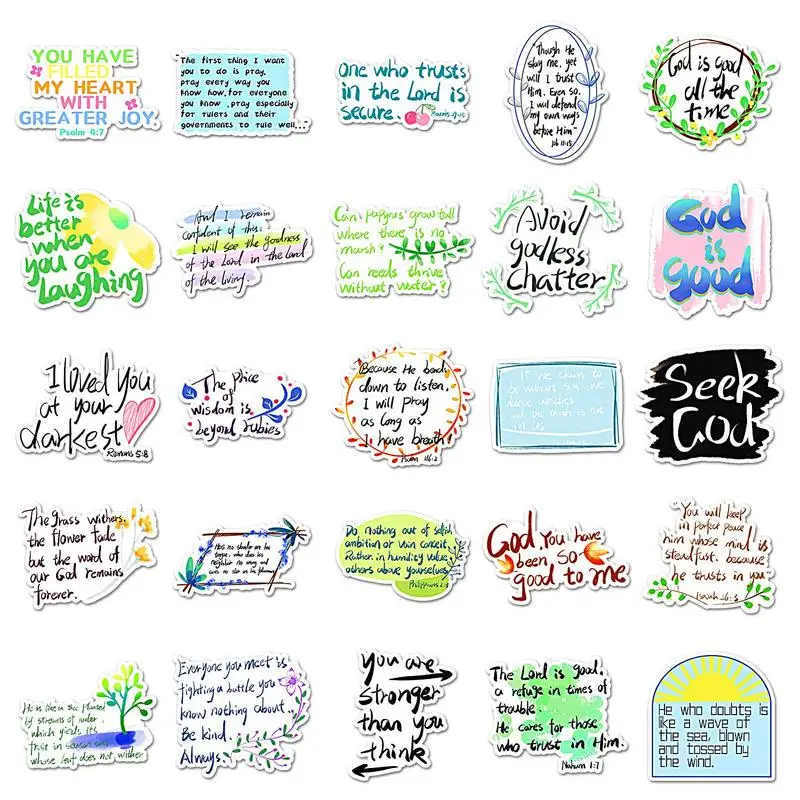 YOU HAVE
FILLED
MY HEART
WITH
GREATER JOY.
Psalm 4:7
The first thing I want
you to do is pray,
pray every way you
know how, for everyone
you know, pray especially
for rulers and their
governments to rule well..."
One who trusts
in the Lord is
secure.
Though He
slay me, yet
will I trust
Him. Even so,
I will defend
my own ways
before Him"
God is good
all the
time
Life is
better
when
you are
Laughing
And I remain
confident of this:
I will see the goodness
of the Lord in the land
of the living.
Can papyrus grow tall
where there is no
marsh?
Can reeds thrive
without water?
Avoid
godless
chatter
God
is
good
I loved you
at your
darkest
Romans 5:8
The price
of
wisdom is
beyond rubies
Because He bends
down to listen,
I will pray
as long as
I have breath!
Psalm 116:2
If we claim to
be without sin, we
and the truth is not
in us
Seek
God
The grass withers,
the flower fade
but the word of
our God remains
forever.
Has no slander on his
tongue, who does his
neighbor no wrong and
casts no slur on his
Do nothing out of selfish
ambition or vain conceit.
Rather, in humility value
others above yourselves
Philippians 2:3
God, You have
been so
good to me
You will keep
in perfect peace
him whose mind is
steadfast, because
he trusts in you.
Isaiah 26:3
He is like a tree planted
by streams of water,
which yields its
fruit in season and
whose leaf does not wither.
Everyone you meet is
fighting a battle you
know nothing about..
Be kind.
Always.
you are
stronger
than you
think
The Lord is good,
a refuge in times of
trouble.
He cares for those
who trust in Him.
Nahum 1:7
He who doubts is
like a wave of
the sea, blown
and tossed by
the wind.